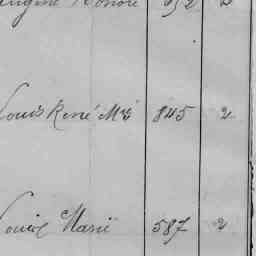 Eugène Honoré 952 2
Louis René Mie 845 2
Louise Marie 587 2